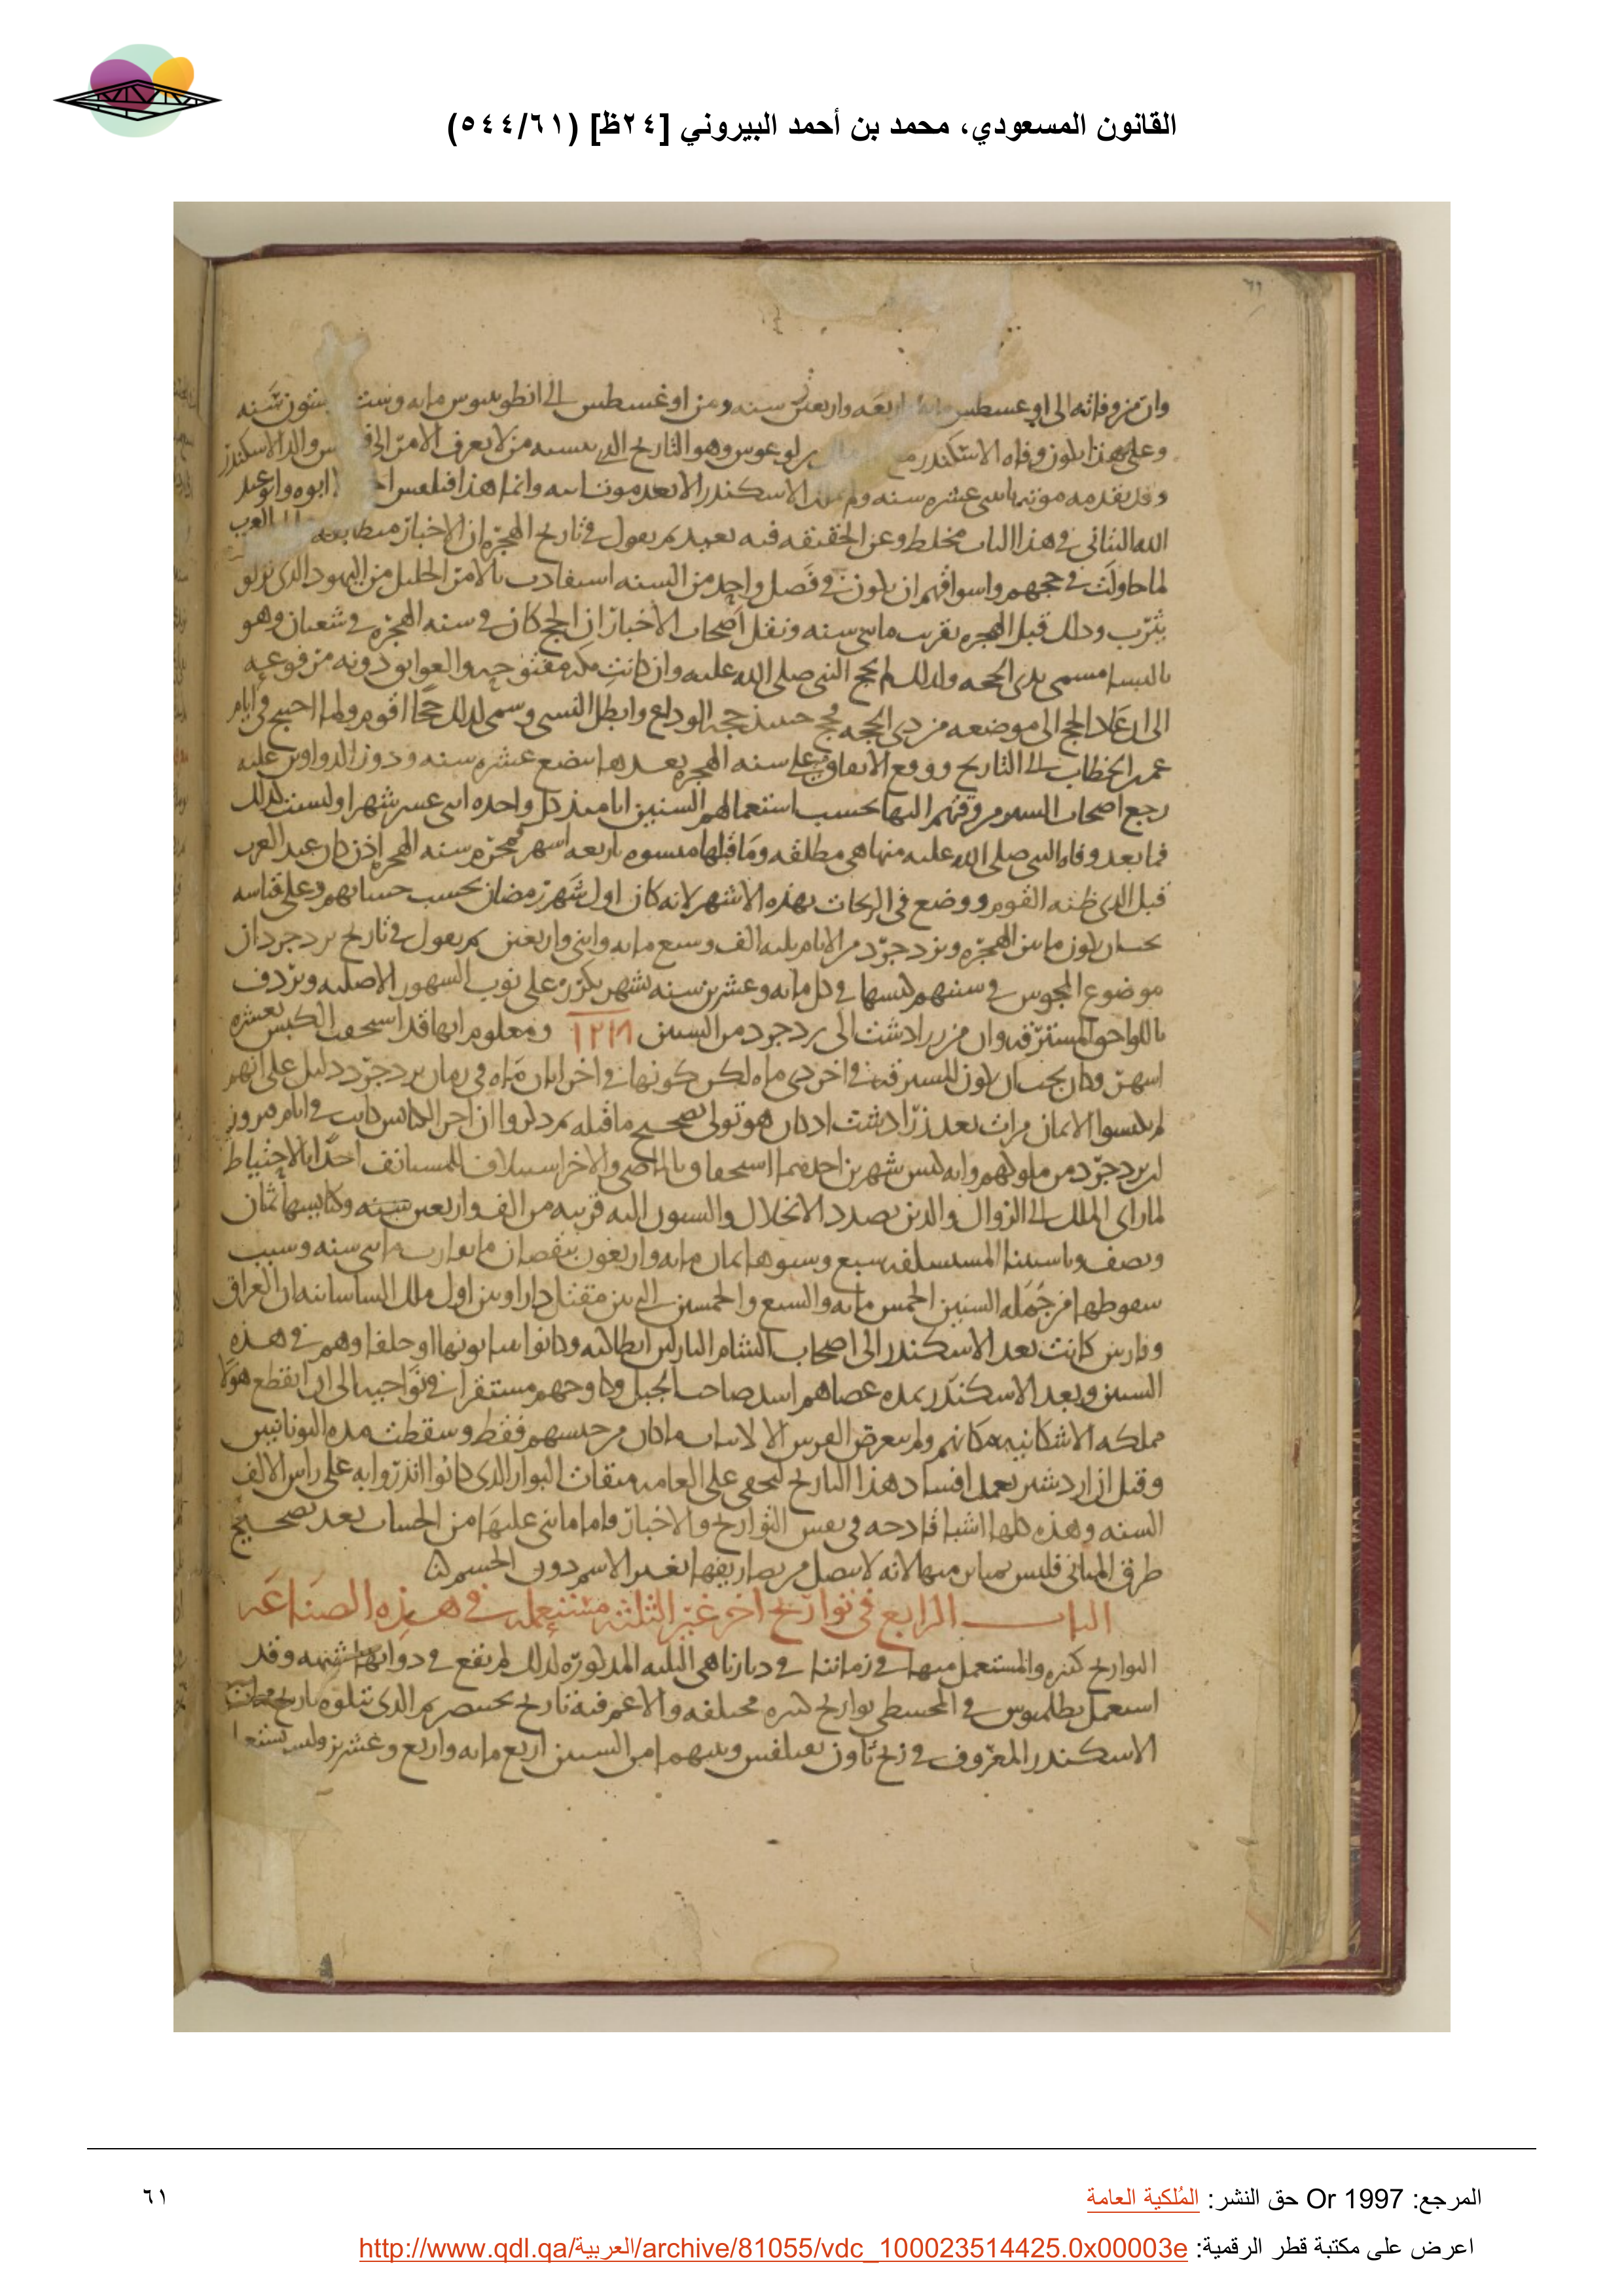 القانون المسعودي، محمد بن أحمد البيروني [٢٤ظ] (٥٤٤/٦١)
٦١
وان من وفاته الى اوغسطس اربعه واربعين سنه ومن اوغسطس الى انطونينوس مايه وست وستون سنه
وعلى هذا يكون وفاه الاسكندر وهو التاريخ الذى من لا يعرف الامر الى والد الاسكندر
وقد تقدمه موته باثنى عشره سنه ولم الاسكندر الا بعد موت وانما هذا فيلفس ابوه وابو عبد
الله البتانى فى هذا الباب مخلط وعن الحقيقه فيه بعيد ثم يقول فى تاريخ الهجره ان الاخبار العرب
لما حاولت فى حجهم واسواقهم ان يكون فى فصل واحد من السنه استفادت الامر الجليل من اليهود الذى نزلو
يثرب وذلك قبل الهجره بقريب مايتى سنه ونقل اصحاب الاخبار ان الحج كان فى سنه الهجره فى شعبان وهو
بالنسا مسمى بذى الحجه ولذلك لم يحج النبى صلى الله عليه وان كانت مكه مفتوحه والعوايق دونه مرفوعه
الى ان عاد الحج الى موضعه من ذى الحجه فحج حينئذ حجه الوداع وابطل النسى وسمى لذلك حجا اقوم ولما احتيج فى ايام
عمر الخطاب الى التاريخ ووقع الاتفاق على سنه الهجره بعدها ببضع عشره سنه ودون الدواوين عليه
رجع اصحاب السير وقتهم اليها بحسب استعمالهم السنين ايامئذ كل واحده اثنى عشر شهرا وليست كذلك
فما بعد وفاه النبى صلى الله عليه منها هى مطلقه وما قبلها منسوه باربعه اشهر فمحرم سنه الهجره اذن كان عند العرب
قبل الذى ظنه القوم ووضع فى الزيجات بهذه الاشهر لانه كان اول شهر رمضان بحسب حسابهم وعلى قياسه
يجب ان يكون ما بين الهجره ويزدجرد من الايام ثلثه الف وسبع مايه واثنى واربعين ثم يقول فى تاريخ يزدجرد ان
موضوع المجوس فى سنيهم كبسها فى كل مايه وعشرين سنه بشهر يكرر على نوب الشهور الاصليه ويردف
باللواحق المسترقه وان من زرادشت الى يزدجرد من السنين ١٢١٨ ومعلوم انها قد استحقت الكبس بعشره
اشهر وكان يجب ان يكون المسترقه فى اخر دى ماه لكن كونها فى اخر ابان ماه فى زمان يزدجرد دليل على انهم
لم يكبسوا الا ثمان مرات بعد زرادشت اذ كان هو تولى تصحيح ما قبله ثم ذكروا ان اخر الكبايس كانت فى ايام فيروز
ابن يزدجرد من ملوكهم وانه كبس شهرين احدهما استحقاق بالماضى والاخر استسلاف للمستانف اخذا بالاحتياط
لما راى الملك الى الزوال والدين بصدد الانحلال والسنون اليه قريبه من الف واربعين سنه وكبايسها ثمان
ونصف وباستثنا المستسلفه سبع وسنوها ثمان مايه واربعون ينقصان ما يقارب مايتى سنه وسبب
سقوطها من جمله السنين الخمس مايه والسبع والخمسين التى بين مقتل دارا وبين اول ملك الساسانيه ان العراق
وفارس كانت بعد الاسكندر الى اصحاب الشام النازلين انطاكيه وكانوا يونها او حلفاوهم فى هذه
السنين وبعد الاسكندر بمده عصاهم اسد صاحب الجبل وكاوحهم مستقرا فى نواحيه الى ان انقطع هولا
مملكه الاشكانيه مكانهم ولم يتعرض الفرس الا لاثبات ما كان من جنسهم فقط وسقطت مده اليونانيين
وقيل ان اردشير تعمد افساد هذا التاريخ ليخفى على العامه ميقات البوار الذى كانوا انذروا به على راس الالف
السنه وهذه كلها اشيا قادحه فى نفس التواريخ والاخبار واما ما بنى عليها من الحساب بعد تصحيح
طرق المبانى فليس بمباين منها لانه لا يتصل من تصاريفها بغير الاسم دون الجسم
الباب الرابع فى تواريخ اخر غير الثلثه مستعمله فى هذه الصناعه
التواريخ كثيره والمستعمل منها فى زماننا فى ديارنا هى الثلثه المذكوره لذلك لم تقع فى ذواتها شبهه وقد
استعمل بطلميوس فى المجسطى تواريخ كثيره مختلفه والاعم فيه تاريخ بختنصر ثم الذى يتلوه تاريخ ممات
الاسكندر المعروف فى زيج ثاون بفيلفس وبينهما من السنين اربع مايه واربع وعشرين وليس يستعمل
المرجع: Or 1997 حق النشر: المُلكية العامة
٦١
اعرض على مكتبة قطر الرقمية: http://www.qdl.qa/العربية/archive/81055/vdc_100023514425.0x00003e